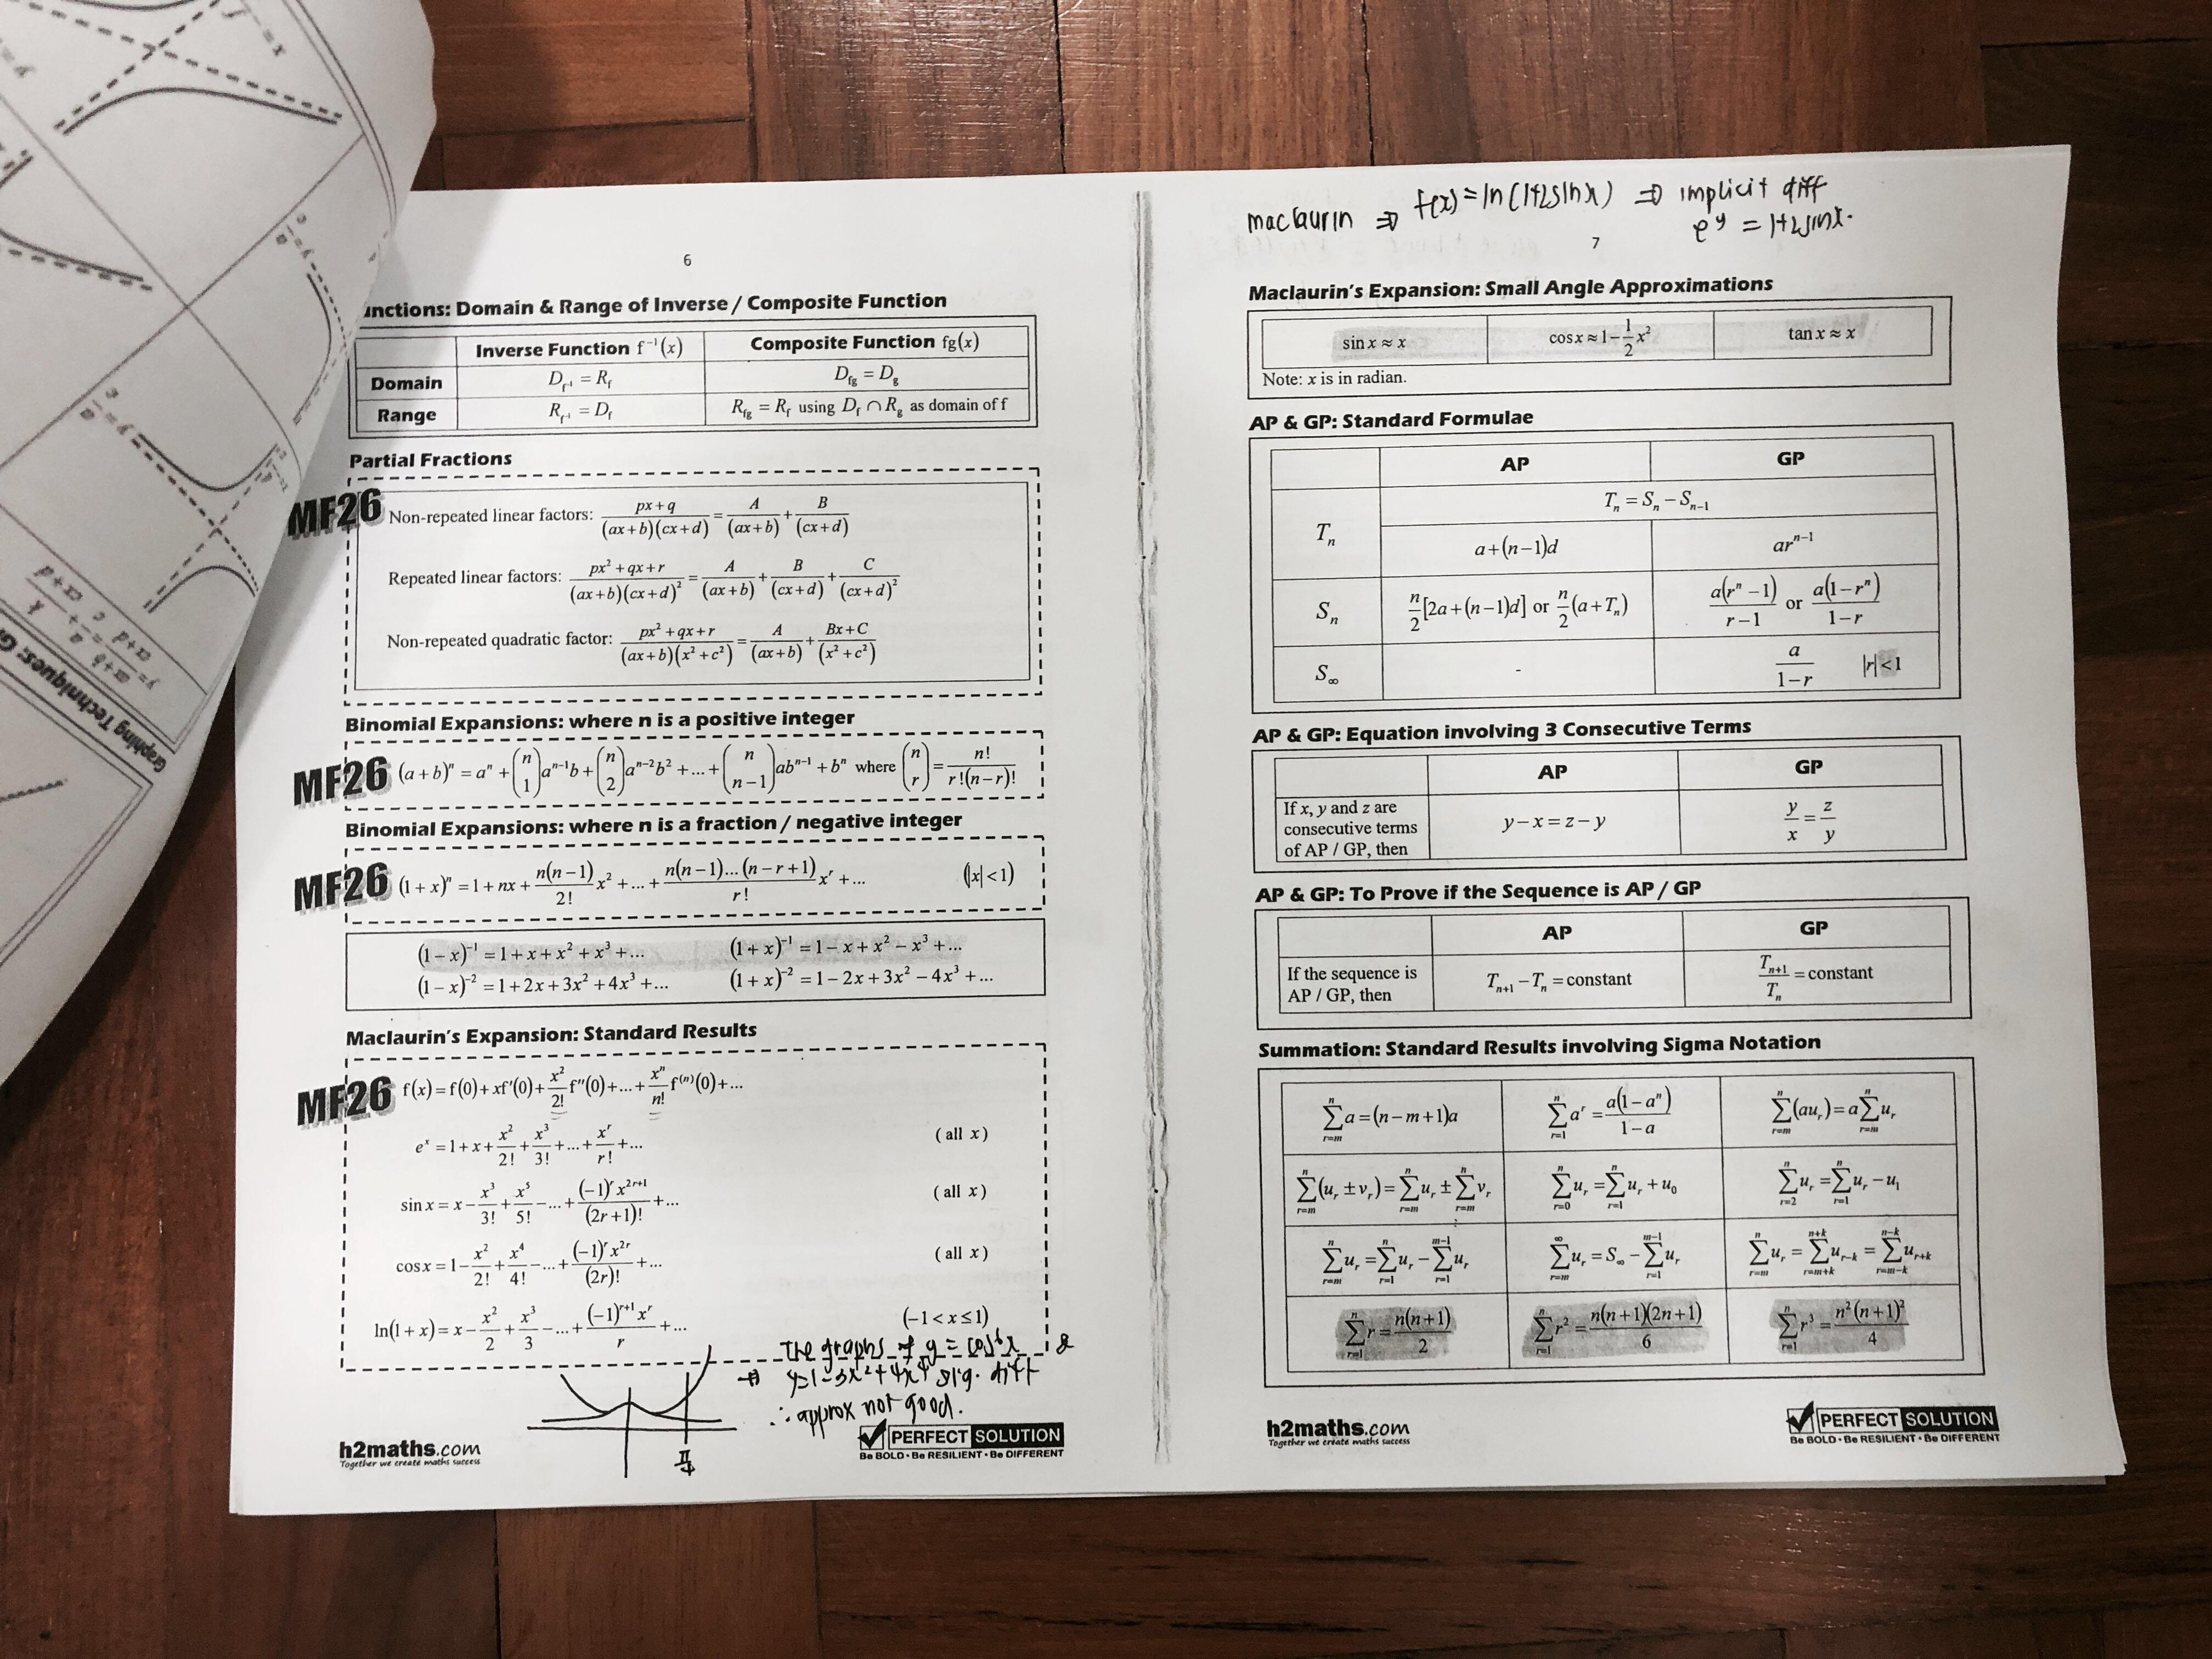 6
unctions: Domain & Range of Inverse / Composite Function
Inverse Function f⁻¹(x) Composite Function fg(x)
Domain D_f⁻¹ = R_f D_fg = D_g
Range R_f⁻¹ = D_f R_fg = R_f using D_f ∩ R_g as domain of f
Partial Fractions
MF26
Non-repeated linear factors: (px+q)/((ax+b)(cx+d)) = A/(ax+b) + B/(cx+d)
Repeated linear factors: (px²+qx+r)/((ax+b)(cx+d)²) = A/(ax+b) + B/(cx+d) + C/(cx+d)²
Non-repeated quadratic factor: (px²+qx+r)/((ax+b)(x²+c²)) = A/(ax+b) + (Bx+C)/(x²+c²)
Binomial Expansions: where n is a positive integer
MF26 (a+b)ⁿ = aⁿ + (n 1)aⁿ⁻¹b + (n 2)aⁿ⁻²b² + ... + (n n−1)abⁿ⁻¹ + bⁿ where (n r) = n!/(r!(n−r)!)
Binomial Expansions: where n is a fraction / negative integer
MF26 (1+x)ⁿ = 1 + nx + n(n−1)/2! x² + ... + n(n−1)...(n−r+1)/r! xʳ + ... (|x| < 1)
(1−x)⁻¹ = 1 + x + x² + x³ + ... (1+x)⁻¹ = 1 − x + x² − x³ + ...
(1−x)⁻² = 1 + 2x + 3x² + 4x³ + ... (1+x)⁻² = 1 − 2x + 3x² − 4x³ + ...
Maclaurin's Expansion: Standard Results
MF26 f(x) = f(0) + xf'(0) + x²/2! f''(0) + ... + xⁿ/n! f⁽ⁿ⁾(0) + ...
eˣ = 1 + x + x²/2! + x³/3! + ... + xʳ/r! + ... ( all x )
sin x = x − x³/3! + x⁵/5! − ... + (−1)ʳx²ʳ⁺¹/(2r+1)! + ... ( all x )
cos x = 1 − x²/2! + x⁴/4! − ... + (−1)ʳx²ʳ/(2r)! + ... ( all x )
ln(1+x) = x − x²/2 + x³/3 − ... + (−1)ʳ⁺¹xʳ/r + ... (−1 < x ≤ 1)
The graphs of y = cos⁶x &
⇒ y=1−3x²+4x⁴ sig. diff
∴ approx not good.
π/4
h2maths.com
Together we create maths success
PERFECT SOLUTION
Be BOLD • Be RESILIENT • Be DIFFERENT
maclaurin ⇒ f(x) = ln(1+2sinx) ⇒ implicit diff
e^y = 1+2sinx.
7
Maclaurin's Expansion: Small Angle Approximations
sin x ≈ x cos x ≈ 1 − 1/2 x² tan x ≈ x
Note: x is in radian.
AP & GP: Standard Formulae
AP GP
T_n T_n = S_n − S_n−1
a + (n−1)d arⁿ⁻¹
S_n n/2[2a + (n−1)d] or n/2(a + T_n) a(rⁿ − 1)/(r−1) or a(1−rⁿ)/(1−r)
S_∞ - a/(1−r) |r| < 1
AP & GP: Equation involving 3 Consecutive Terms
AP GP
If x, y and z are
consecutive terms
of AP / GP, then
y − x = z − y y/x = z/y
AP & GP: To Prove if the Sequence is AP / GP
AP GP
If the sequence is
AP / GP, then
T_n+1 − T_n = constant T_n+1/T_n = constant
Summation: Standard Results involving Sigma Notation
∑_{r=m}^{n} a = (n−m+1)a ∑_{r=1}^{n} aʳ = a(1−aⁿ)/(1−a) ∑_{r=m}^{n} (au_r) = a∑_{r=m}^{n} u_r
∑_{r=m}^{n} (u_r ± v_r) = ∑_{r=m}^{n} u_r ± ∑_{r=m}^{n} v_r ∑_{r=0}^{n} u_r = ∑_{r=1}^{n} u_r + u_0 ∑_{r=2}^{n} u_r = ∑_{r=1}^{n} u_r − u_1
∑_{r=m}^{n} u_r = ∑_{r=1}^{n} u_r − ∑_{r=1}^{m−1} u_r ∑_{r=m}^{∞} u_r = S_∞ − ∑_{r=1}^{m−1} u_r ∑_{r=m}^{n} u_r = ∑_{r=m+k}^{n+k} u_r−k = ∑_{r=m−k}^{n−k} u_r+k
∑_{r=1}^{n} r = n(n+1)/2 ∑_{r=1}^{n} r² = n(n+1)(2n+1)/6 ∑_{r=1}^{n} r³ = n²(n+1)²/4
h2maths.com
Together we create maths success
PERFECT SOLUTION
Be BOLD • Be RESILIENT • Be DIFFERENT
Graphing Techniques: G